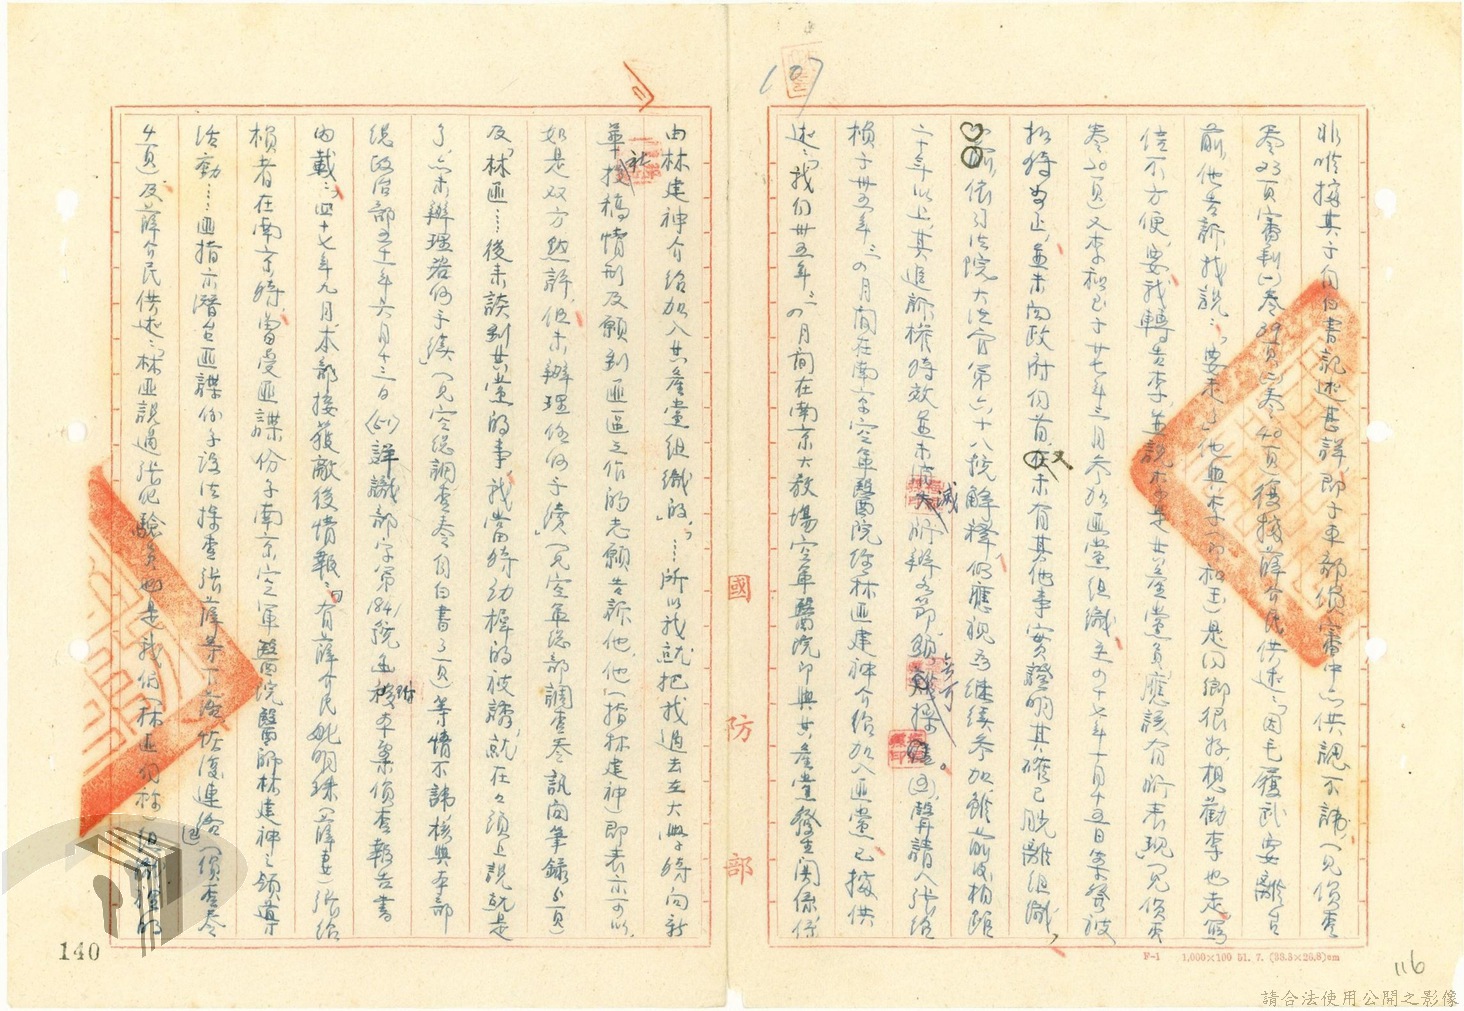 非唯據其子自白書記述甚詳即于本部偵審中亦供認不諱（見偵查
卷23頁審判卷39頁卷40頁）復據薛介民供述「因毛鑊武要離台
前他告訴我說：『要走了』他與李（即和玉）是同鄉很好想勸李也走寫
信不方便要我轉告李並說李是共產黨員應該有所表現」（見偵查
卷20頁）又李和玉于廿七年三月參加匪黨組織至四十七年十月十五日案發被
拘時為止並未向政府自首又未有其他事實證明其確已脫離組織
以前依司法院大法官第六十八號解釋仍應視為繼續參加雖前後相距
二十年以上其追訴權時效並未消滅所辯各節殊無可採。㈣聲請人張為
楨于卅五年三四月間在南京空軍醫院經林匪建神介紹加入匪黨已據供
述：「我們卅五年三四月間在南京大教場空軍醫院即與共產黨發生関係係
由林建神介紹加入共產黨組織的」「……所以我就把我過去在大學時向新
華社投稿情形及願到匪區工作的志願告訴他，他（指林建神）即表示可以，
如是双方默許，但未辦理任何手續」（見空軍總部調查卷訊問筆錄5頁）
及「林匪……後來談到共黨的事我當時幼稚的被誘，就在口頭上說就是
了，亦未辦理任何手續」（見空總調查卷自白書3頁）等情不諱，核與本部
總政治部五十一年六月十三日（51）詳識部字第1841號函附本案偵查報告書
內載：「四十七年九月本部接獲敵後情報：有薛介民姚明珠（薛妻）張為
楨者在南京時，曾受匪諜份子南京空軍醫院醫師林建神之領導
活動…匪指示潛台匪諜份子設法採查張薛等下落恢復連絡」（偵查卷
4頁）及薛介民供述：「林匪說過張也驗是也是我們（林匪自稱）組織裡的
國防部
F-1 1,000×100 51. 7. (38.3×26.8)cm
140
116
107
請合法使用公開之影像